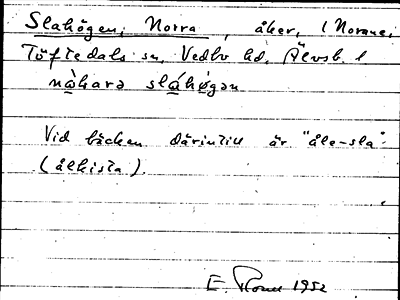 Slahögen, Norra, åker, i Norane,
Töftedals sn, Vedbo hd, Älvsb. l
nåhara slåhögan
Vid bäcken därintill är "åle-sla"
(ålkista).
E. 1952